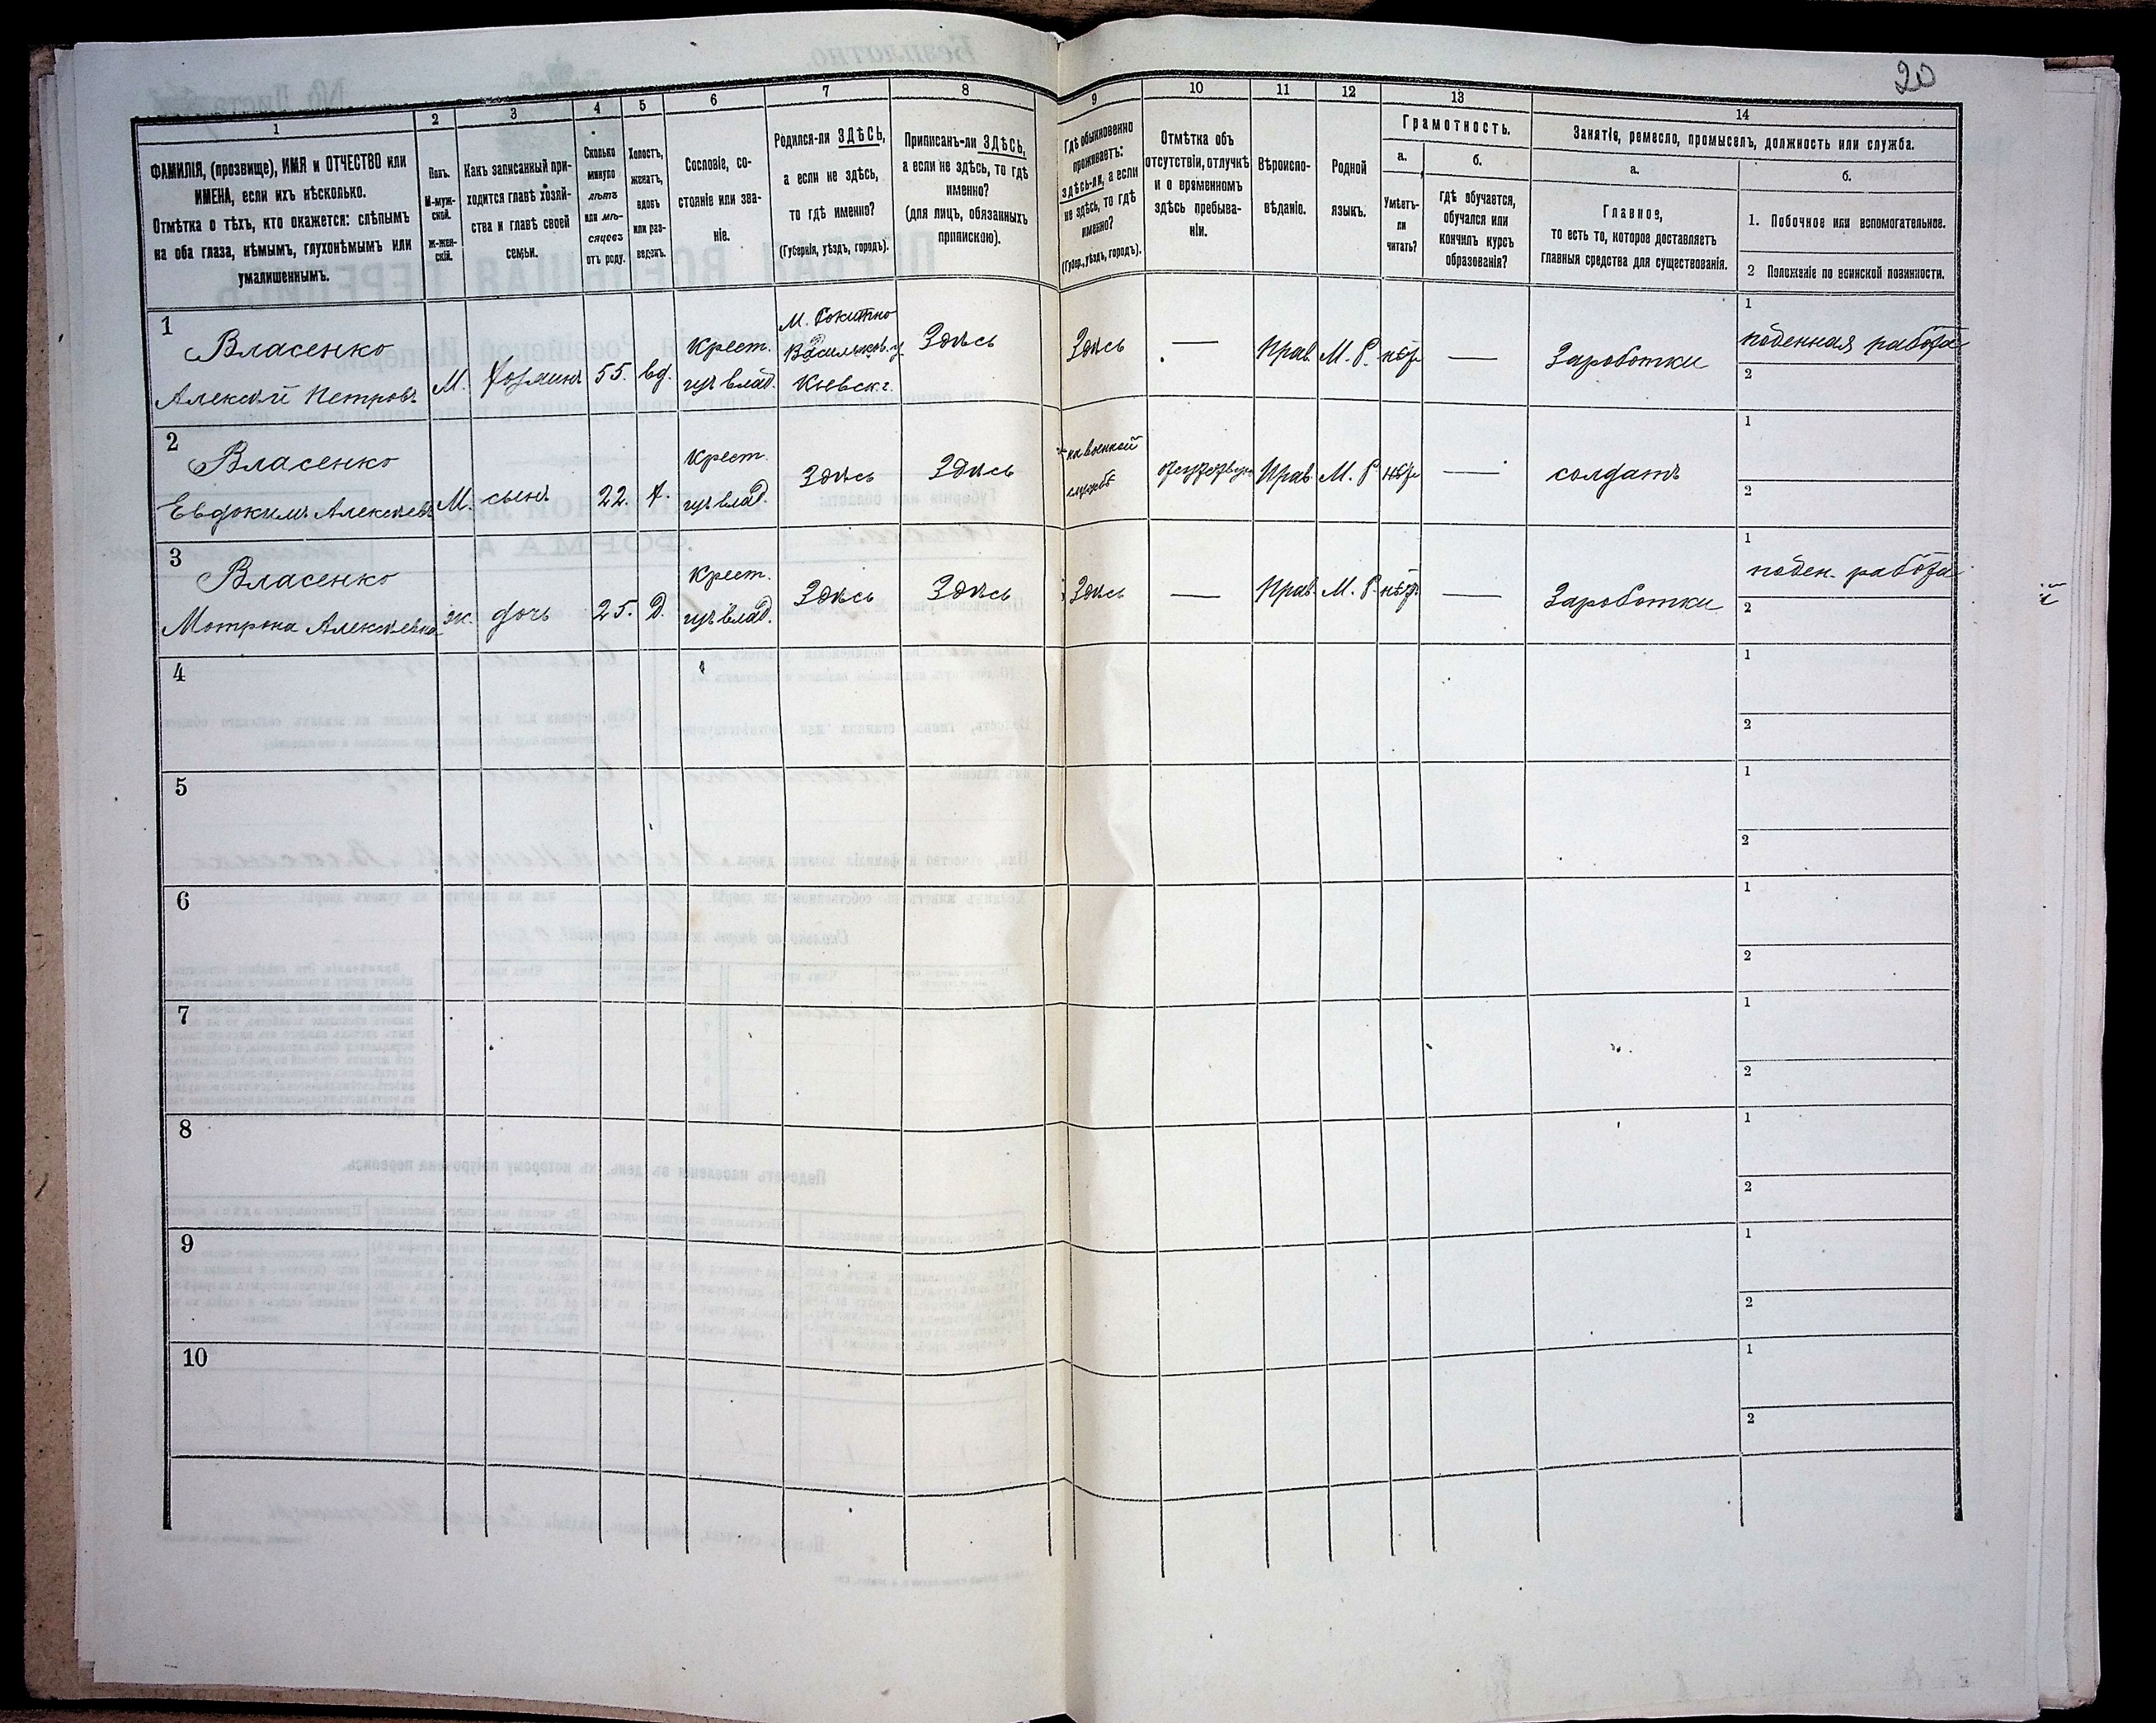 20
1
2
3
4
5
6
7
8
9
10
11
12
13
14
ФАМИЛІЯ, (прозвище), ИМЯ и ОТЧЕСТВО или
ИМЕНА, если ихъ нѣсколько.
Отмѣтка о тѣхъ, кто окажется: слѣпымъ
на оба глаза, нѣмымъ, глухонѣмымъ или
умалишеннымъ.
Полъ.
М-муж-
ской.
Ж-жен-
скій.
Какъ записанный при-
ходится главѣ хозяй-
ства и главѣ своей
семьи.
Сколько
минуло
лѣтъ
или мѣ-
сяцевъ
отъ роду.
Холостъ,
женатъ,
вдовъ
или раз-
веденъ.
Сословіе, со-
стояніе или зва-
ніе.
Родился-ли ЗДѢСЬ,
а если не здѣсь,
то гдѣ именно?
(Губернія, уѣздъ, городъ).
Приписанъ-ли ЗДѢСЬ,
а если не здѣсь, то гдѣ
именно?
(для лицъ, обязанныхъ
припискою).
Гдѣ обыкновенно
проживаетъ:
здѣсь-ли, а если
не здѣсь, то гдѣ
именно?
(Губер., уѣздъ, городъ).
Отмѣтка объ
отсутствіи, отлучкѣ
и о временномъ
здѣсь пребыва-
ніи.
Вѣроиспо-
вѣданіе.
Родной
языкъ.
Грамотность.
а.
Умѣетъ-
ли
читать?
б.
Гдѣ обучается,
обучался или
кончилъ курсъ
образованія?
Занятіе, ремесло, промыселъ, должность или служба.
а.
Главное,
то есть то, которое доставляетъ
главныя средства для существованія.
б.
1. Побочное или вспомогательное.
2 Положеніе по воинской повинности.
1
Власенко
Алексѣй Петровъ
М.
хозяинъ
55.
вд.
Крест.
М. Рокитно
Васильков. у.
Кіевск. г.
Здѣсь
Здѣсь
—
Прав.
М. Р.
нѣтъ
—
Заработки
1
поденная работа
2
2
Власенко
Евдокимъ Алексѣевъ
М.
сынъ
22.
Крест.
Здѣсь
Здѣсь
на военной
службѣ
Прав.
М. Р.
нѣтъ
—
солдатъ
1
2
3
Власенко
Мотрона Алексѣевна
ж.
дочь
25.
Д.
Крест.
Здѣсь
Здѣсь
Здѣсь
—
Прав.
М. Р.
нѣтъ
—
Заработки
1
поден. работа
2
4
1
2
5
1
2
6
1
2
7
1
2
8
1
2
9
1
2
10
1
2